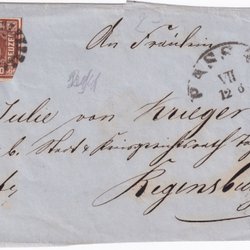 KREUZER
2-
An Fräulein
PASS
VII
12 6
Julie von Krieger
b. Stadt & Kreisgerichtsrath
Regensb